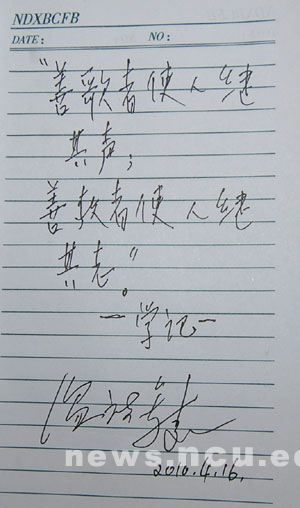 NDXBCFB
DATE: NO:
“善歌者使人继
其声；
善教者使人继
其志”。
—学记—
news.ncu.e
2010.4.16.